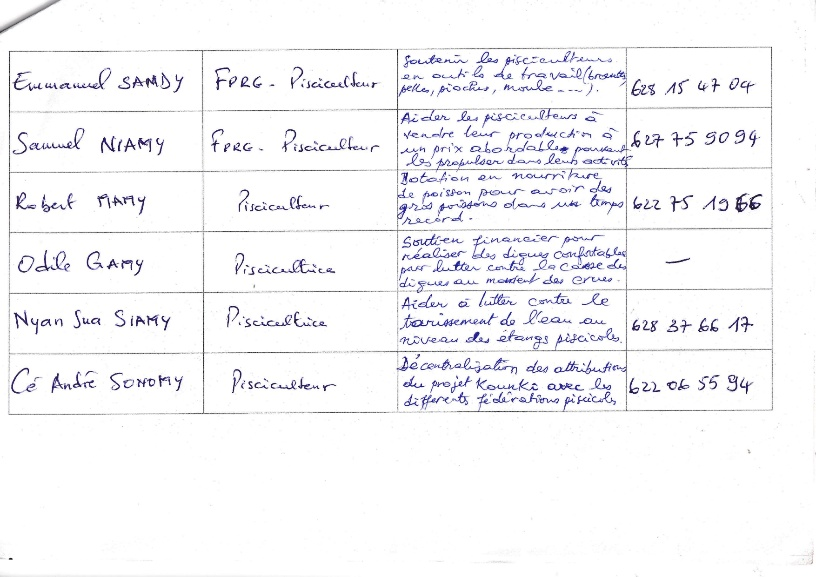 Emmanuel SANDY
FPRG - Pisciculteur
Soutenir les pisciculteurs
en outils de travail (brouettes,
pelles, pioches, moule ---).
628 15 47 04
Samuel NIAMY
FPRG - Pisciculteur
Aider les pisciculteurs à
vendre leur production à
un prix abordable pouvant
les propulser dans leur activité
627 75 90 94
Robert MAMY
Pisciculteur
Dotation en nourriture
de poisson pour avoir des
gros poissons dans un temps
record.
622 75 19 66
Odile GAMY
Piscicultrice
Soutien financier pour
réaliser des digues confortables
pour lutter contre la casse des
digues au moment des crues.
—
Nyan Sua SIAMY
Piscicultrice
Aider à lutter contre le
tarissement de l'eau au
niveau des étangs piscicoles.
628 37 66 17
Cé André SONOMY
Pisciculteur
Décentralisation des attributions
du projet Kounki avec les
differents fédérations piscicoles
622 06 55 94